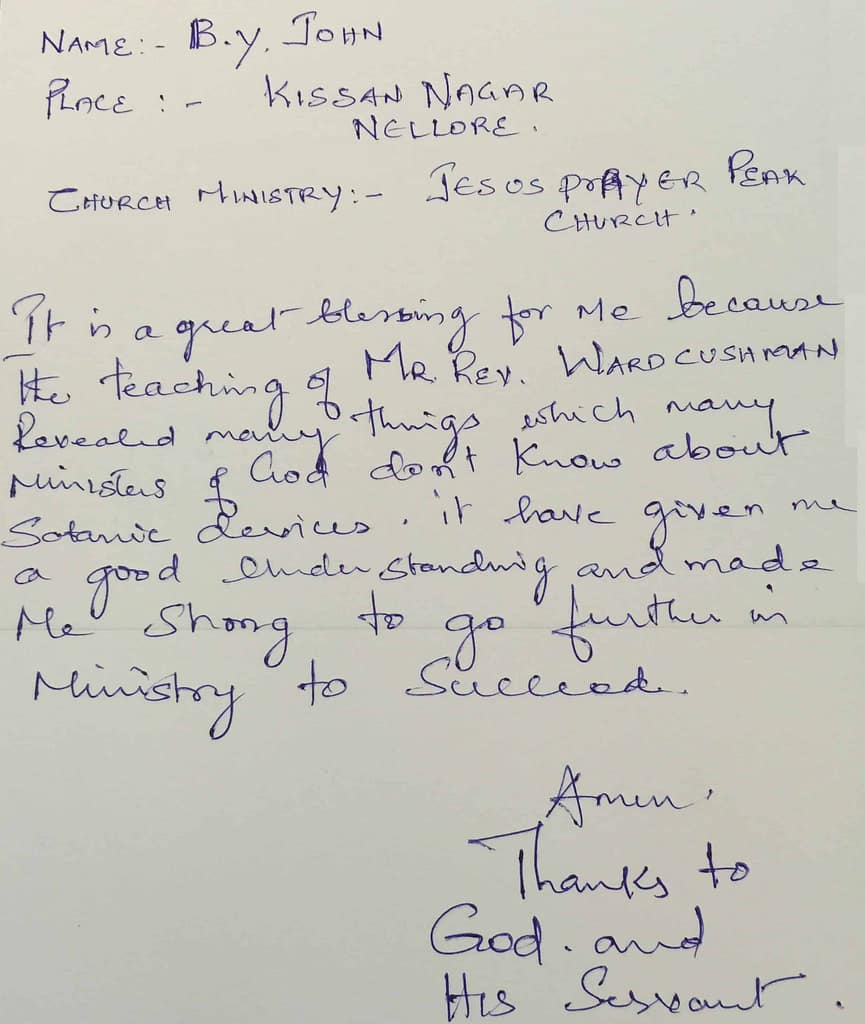 NAME:- B.Y. JOHN
PLACE :- KISSAN NAGAR
NELLORE.
CHURCH MINISTRY:- JESUS PRAYER PEAK
CHURCH.
It is a great blessing for me because
the teaching of MR. REV. WARD CUSHMAN
Revealed many things which many
Ministers of God don't know about
Satanic devices. it have given me
a good understanding and made
Me Strong to go further in
Ministry to Succeed.
Amen.
Thanks to
God. and
His Servant.